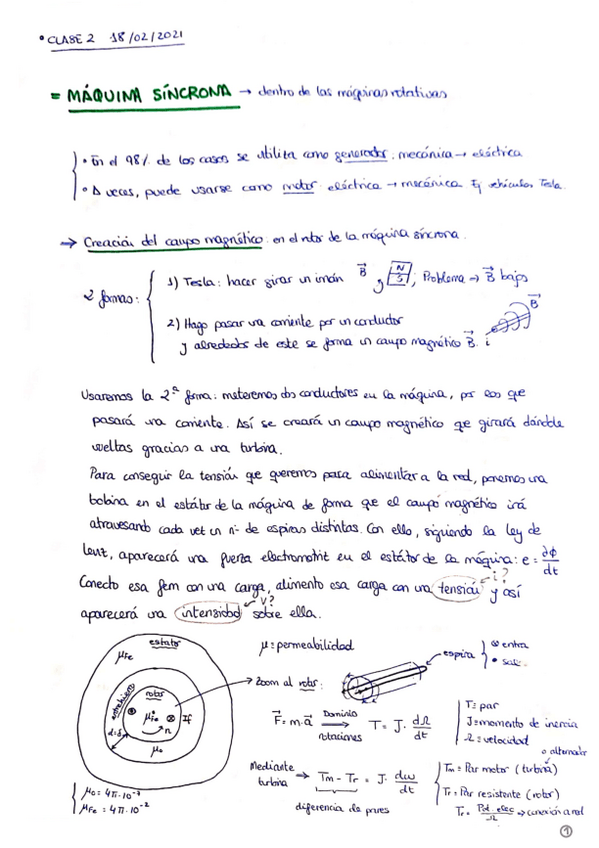 • CLASE 2 18/02/2021
= MÁQUINA SÍNCRONA → dentro de las máquinas rotativas
• En el 98% de los casos se utiliza como generador: mecánica → eléctrica
• A veces, puede usarse como motor: eléctrica → mecánica. Ej vehículos Tesla.
→ Creación del campo magnético: en el rotor de la máquina síncrona.
2 formas:
1) Tesla: hacer girar un imán B⃗ N S ; Problema → B⃗ bajo
2) Hago pasar una corriente por un conductor
y alrededor de este se forma un campo magnético B⃗. i B⃗
Usaremos la 2ª forma: meteremos dos conductores en la máquina, por los que
pasará una corriente. Así se creará un campo magnético que girará dándole
vueltas gracias a una turbina.
Para conseguir la tensión que queremos para alimentar a la red, ponemos una
bobina en el estátor de la máquina de forma que el campo magnético irá
atravesando cada vez un nº de espiras distintas. Con ello, siguiendo la ley de
Lenz, aparecerá una fuerza electromotriz en el estátor de la máquina: e = ∂ϕ/dt
Conecto esa fem con una carga, alimento esa carga con una tensión i? y así
aparecerá una intensidad v? sobre ella.
estátor
μFe
entrehierro
rotor
μFe If
n
μ₀
μ₀ = 4π·10⁻⁷
μFe = 4π·10⁻²
μ = permeabilidad
→ Zoom al rotor:
espira
⊗ entra
• sale
F⃗ = m·a⃗ Dominio rotaciones → T = J · dΩ/dt
T = par
J = momento de inercia
Ω = velocidad
o alternador
Mediante turbina → Tm - Tr = J · dω/dt
diferencia de pares
Tm = Par motor (turbina)
Tr = Par resistente (rotor)
Tr = Pot. elec/Ω → conexión a red
1